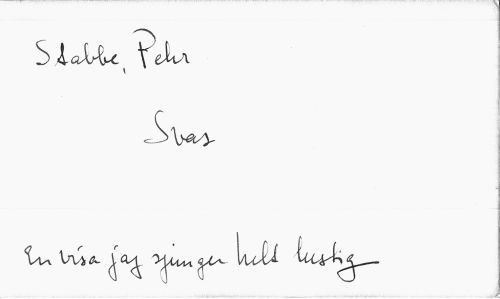 Stabbe, Pehr
Svar
En visa jag sjunger helt lustig